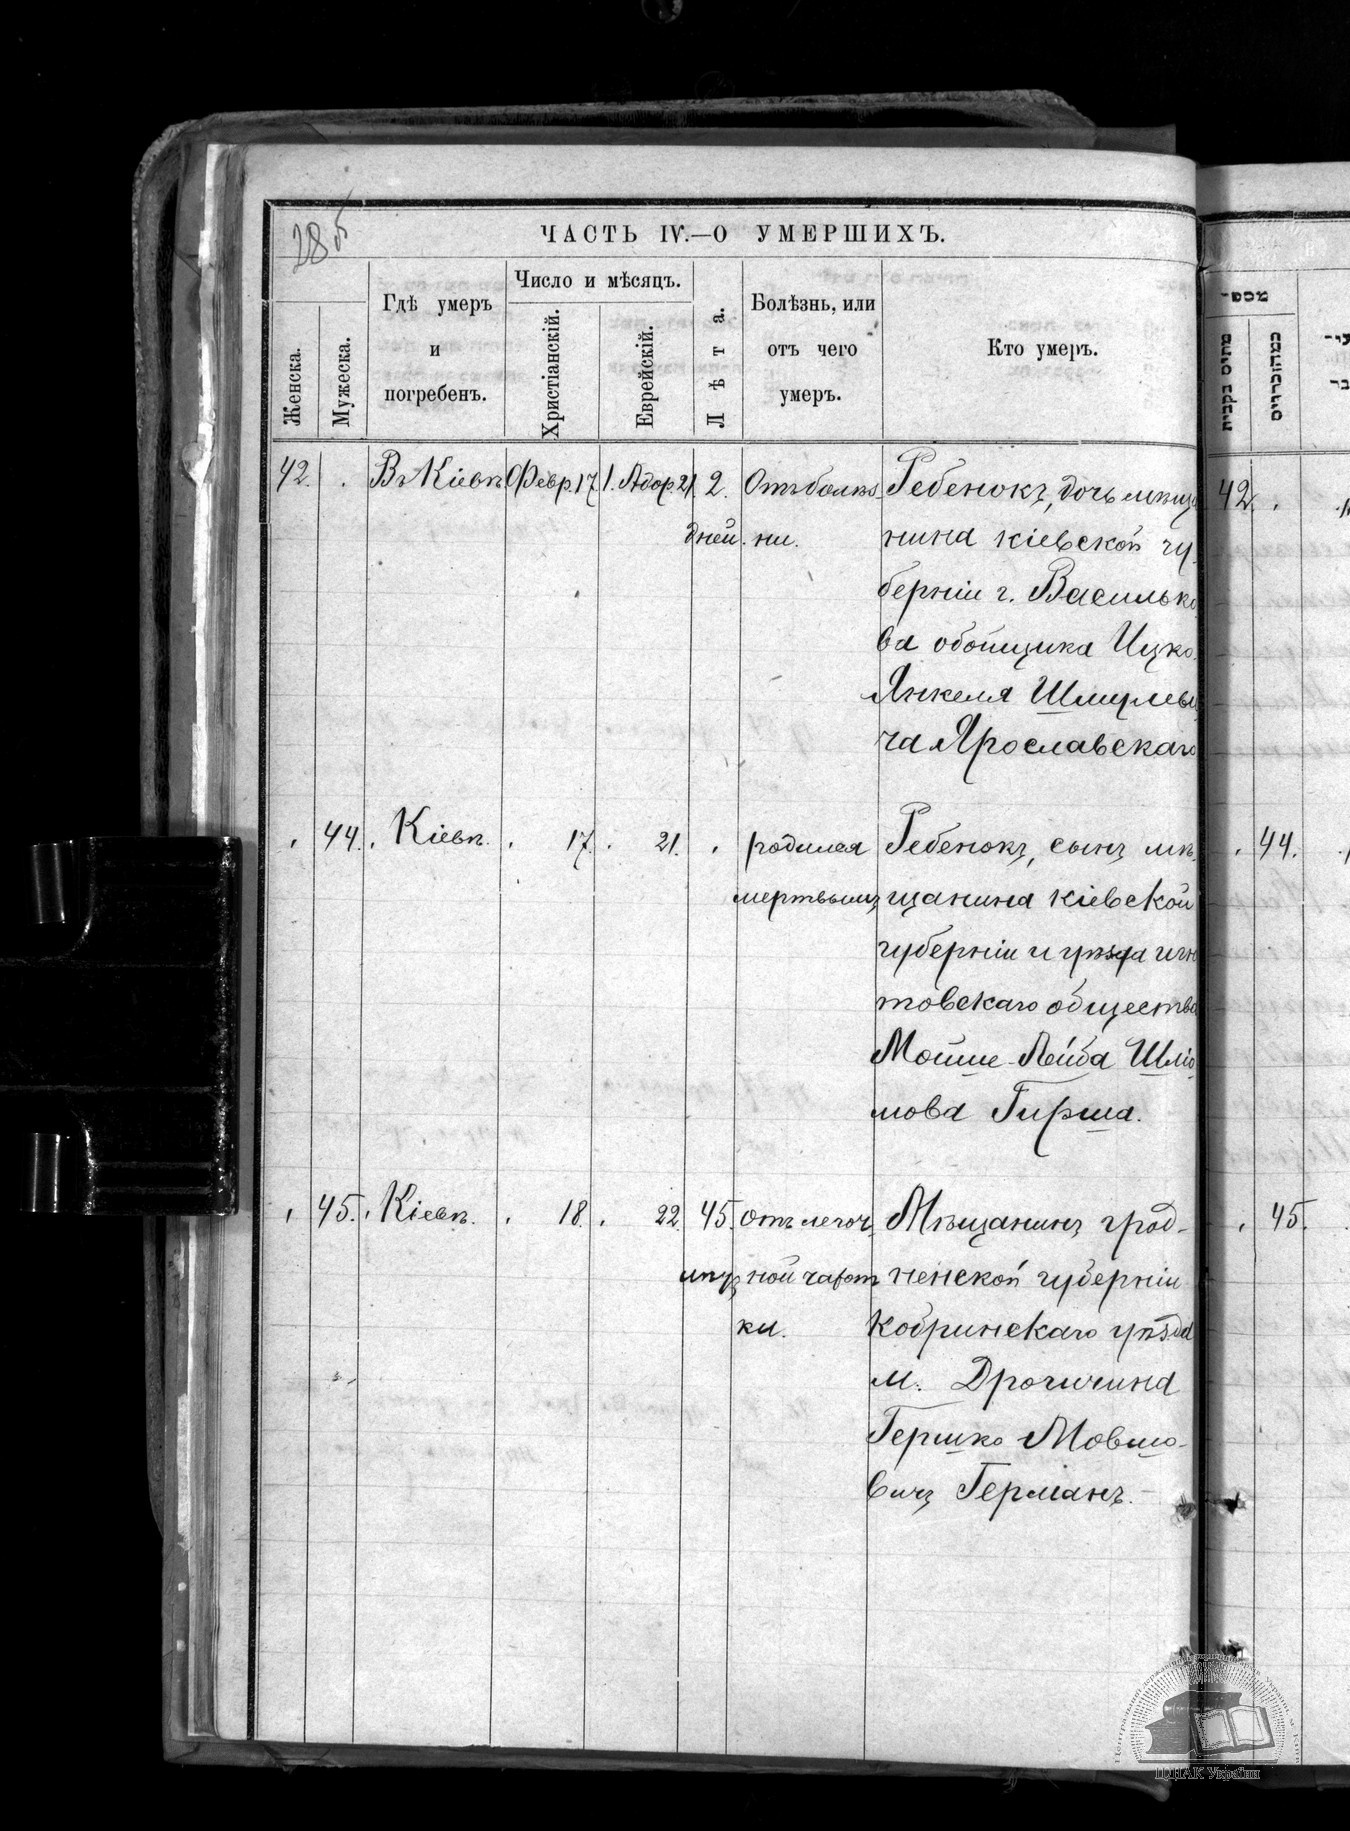 28 об
ЧАСТЬ IV.—О УМЕРШИХЪ.
Женска.
Мужеска.
Гдѣ умеръ
и
погребенъ.
Число и мѣсяцъ.
Христіанскій.
Еврейскій.
Лѣта.
Болѣзнь, или
отъ чего
умеръ.
Кто умеръ.
42. . Въ Кіевѣ Февр. 17. 1. Адор 21. 2. Отъ болѣз- Ребенокъ, дочь мѣща
дней. ни. нина кіевской гу-
берніи г. Василько
ва обойщика Ицко-
Янкеля Шмулеви
ча Ярославскаго
. 44. . Кіевѣ. . 17. . 21. . родился Ребенокъ, сынъ мѣ-
мертвымъ щанина кіевской
губерніи и уѣзда игна
товскаго общества
Мойше-Лейба Шлio
мова Гирша.
. 45. . Кіевѣ. . 18. . 22. 45. отъ легоч- Мѣщанинъ грод-
ной чахот ненской губерніи
ки. Кобринскаго уѣзда
м. Дрогичина
Гершко Мовшо-
вичъ Германъ.
מספר
נקבות
זכרים
42. .
. 44.
. 45.
ЦДІАК України